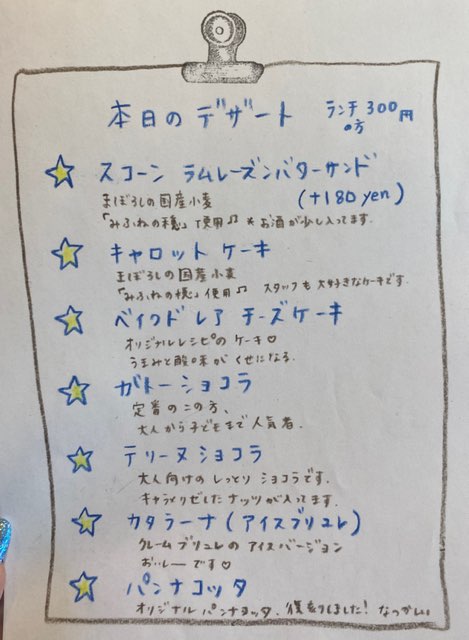 本日のデザート
ランチ 300円
の方
スコーン ラムレーズンバターサンド
(+180 yen)
まぼろしの国産小麦
「みふねの穂」使用♫ ※お酒が少し入ってます.
キャロット ケーキ
まぼろしの国産小麦
「みふねの穂」使用♫ スタッフも大好きなケーキです.
ベイクド レア チーズケーキ
オリジナルレシピのケーキ♡
うまみと酸味がくせになる.
ガトーショコラ
定番のこの方、
大人から子どもまで人気者.
テリーヌショコラ
大人向けのしっとりショコラです.
キャラメリゼしたナッツが入ってます.
カタラーナ(アイスブリュレ)
クレームブリュレのアイスバージョン
おいしーです♡
パンナコッタ
オリジナルパンナコッタ. 復刻しました! なつかしい